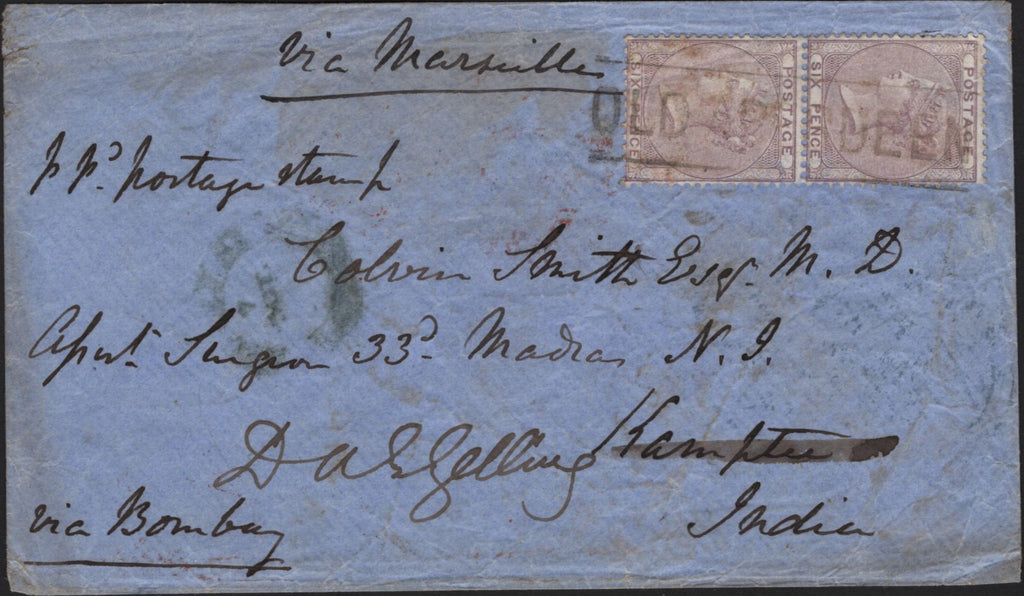 via Marseilles
SIX PENCE POSTAGE
SIX PENCE POSTAGE
OLD
DEER
p pd. postage stamp
Colvin Smith Esqr. M. D.
Asst. Surgeon 33d. Madras N. I.
Kamptee
via Bombay
India